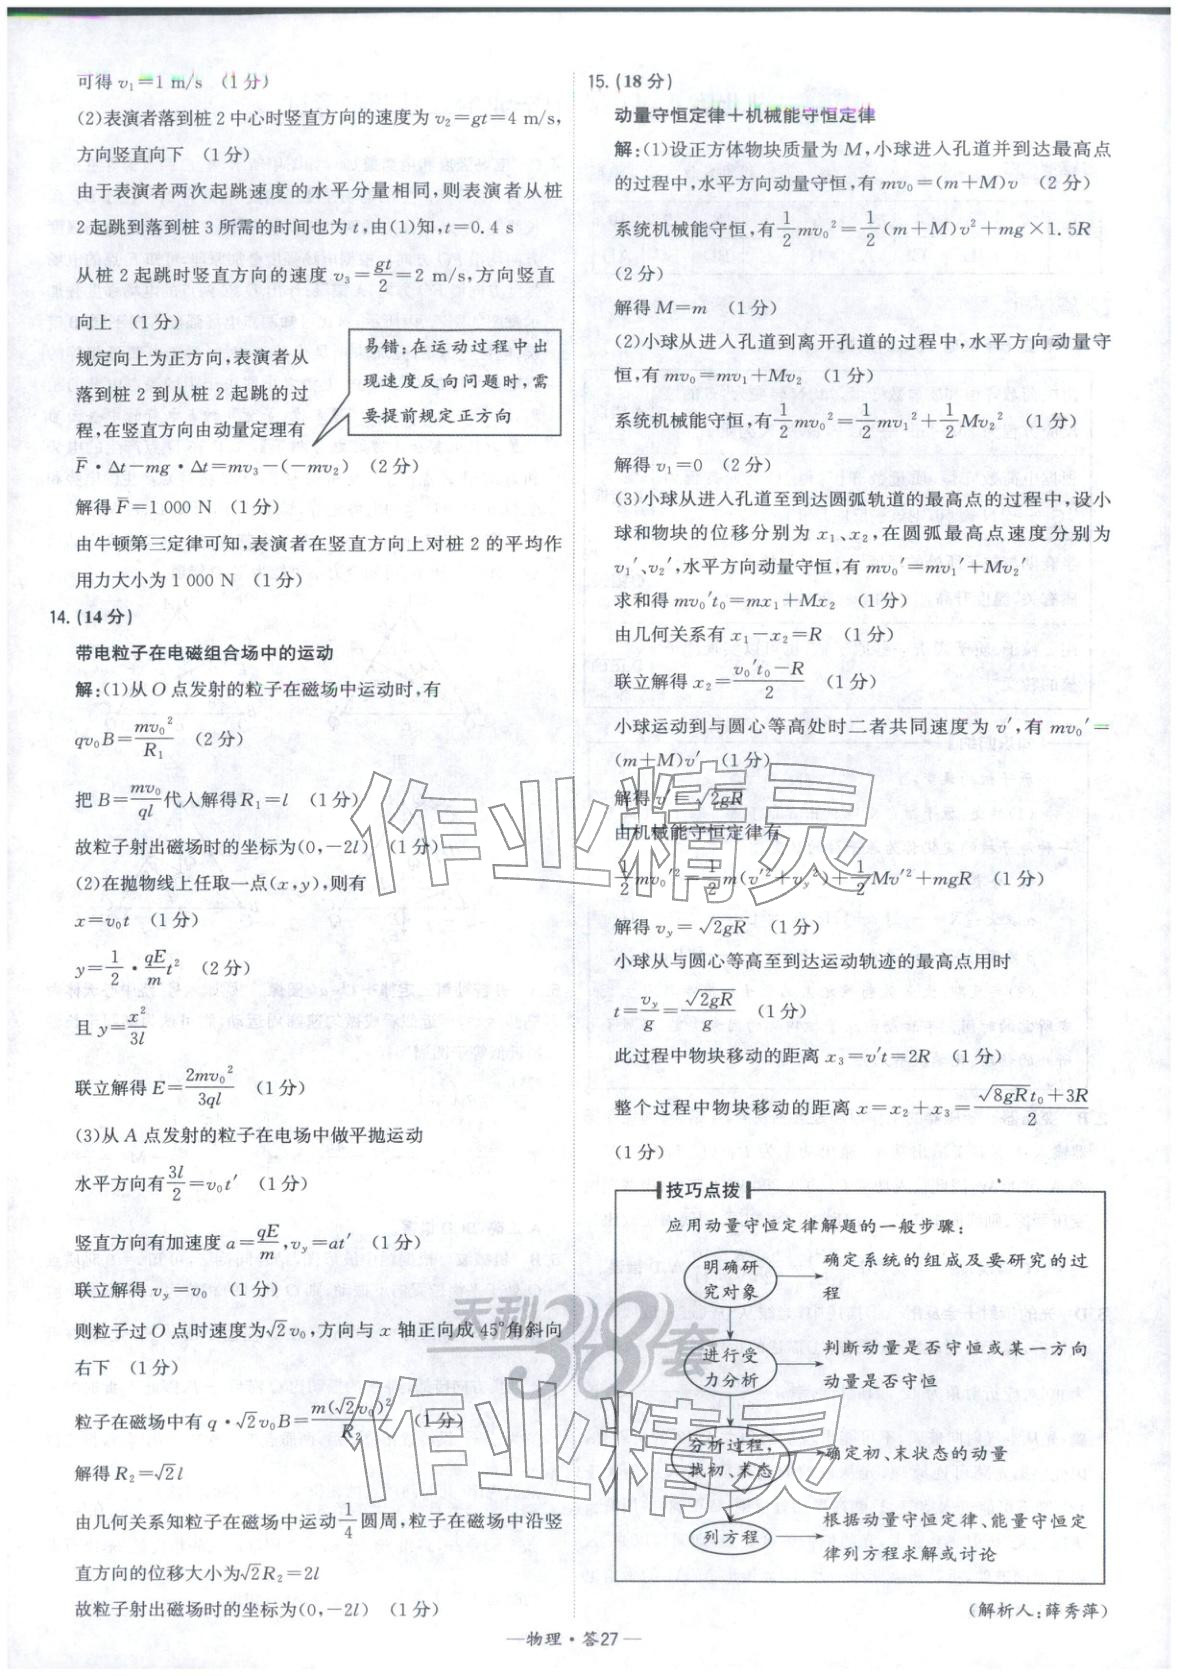 可得 v₁=1 m/s (1分)
(2)表演者落到桩2中心时竖直方向的速度为 v₂=gt=4 m/s,
方向竖直向下 (1分)
由于表演者两次起跳速度的水平分量相同,则表演者从桩
2起跳到落到桩3所需的时间也为 t,由(1)知,t=0.4 s
从桩2起跳时竖直方向的速度 v₃=gt/2=2 m/s,方向竖直
向上 (1分)
规定向上为正方向,表演者从
落到桩2到从桩2起跳的过
程,在竖直方向由动量定理有
易错:在运动过程中出
现速度反向问题时,需
要提前规定正方向
F̅·Δt−mg·Δt=mv₃−(−mv₂) (2分)
解得 F̅=1 000 N (1分)
由牛顿第三定律可知,表演者在竖直方向上对桩2的平均作
用力大小为1 000 N (1分)
14.(14分)
带电粒子在电磁组合场中的运动
解:(1)从O点发射的粒子在磁场中运动时,有
qv₀B=mv₀²/R₁ (2分)
把 B=mv₀/ql 代人解得 R₁=l (1分)
故粒子射出磁场时的坐标为(0,−2l) (1分)
(2)在抛物线上任取一点(x,y),则有
x=v₀t (1分)
y=1/2·qE/m t² (2分)
且 y=x²/3l
联立解得 E=2mv₀²/3ql (1分)
(3)从A点发射的粒子在电场中做平抛运动
水平方向有 3l/2=v₀t′ (1分)
竖直方向有加速度 a=qE/m,v_y=at′ (1分)
联立解得 v_y=v₀ (1分)
则粒子过O点时速度为√2v₀,方向与x轴正向成45°角斜向
右下 (1分)
粒子在磁场中有 q·√2v₀B=m(√2v₀)²/R₂ (1分)
解得 R₂=√2l
由几何关系知粒子在磁场中运动1/4圆周,粒子在磁场中沿竖
直方向的位移大小为√2R₂=2l
故粒子射出磁场时的坐标为(0,−2l) (1分)
15.(18分)
动量守恒定律+机械能守恒定律
解:(1)设正方体物块质量为M,小球进入孔道并到达最高点
的过程中,水平方向动量守恒,有 mv₀=(m+M)v (2分)
系统机械能守恒,有1/2mv₀²=1/2(m+M)v²+mg×1.5R
(2分)
解得 M=m (1分)
(2)小球从进入孔道到离开孔道的过程中,水平方向动量守
恒,有 mv₀=mv₁+Mv₂ (1分)
系统机械能守恒,有1/2mv₀²=1/2mv₁²+1/2Mv₂² (1分)
解得 v₁=0 (2分)
(3)小球从进入孔道至到达圆弧轨道的最高点的过程中,设小
球和物块的位移分别为 x₁、x₂,在圆弧最高点速度分别为
v₁′、v₂′,水平方向动量守恒,有 mv₀′=mv₁′+Mv₂′
求和得 mv₀′t₀=mx₁+Mx₂ (1分)
由几何关系有 x₁−x₂=R (1分)
联立解得 x₂=(v₀′t₀−R)/2 (1分)
小球运动到与圆心等高处时二者共同速度为 v′,有 mv₀′=
(m+M)v′ (1分)
解得 v′=√2gR
由机械能守恒定律有
1/2mv₀′²=1/2m(v′²+v_y²)+1/2Mv′²+mgR (1分)
解得 v_y=√2gR (1分)
小球从与圆心等高至到达运动轨迹的最高点用时
t=v_y/g=√2gR/g (1分)
此过程中物块移动的距离 x₃=v′t=2R (1分)
整个过程中物块移动的距离 x=x₂+x₃=(√8gR t₀+3R)/2
(1分)
技巧点拨
应用动量守恒定律解题的一般步骤:
明确研
究对象
确定系统的组成及要研究的过
程
进行受
力分析
判断动量是否守恒或某一方向
动量是否守恒
分析过程,
找初、末态
确定初、末状态的动量
列方程
根据动量守恒定律、能量守恒定
律列方程求解或讨论
(解析人:薛秀萍)
天利38套
作业精灵
作业精灵
—物理·答27—